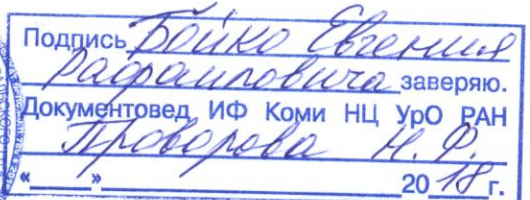 Подпись Бойко Евгения
Рафаиловича заверяю.
Документовед ИФ Коми НЦ УрО РАН
Проворова Н. Ф.
«____»____________ 2018 г.